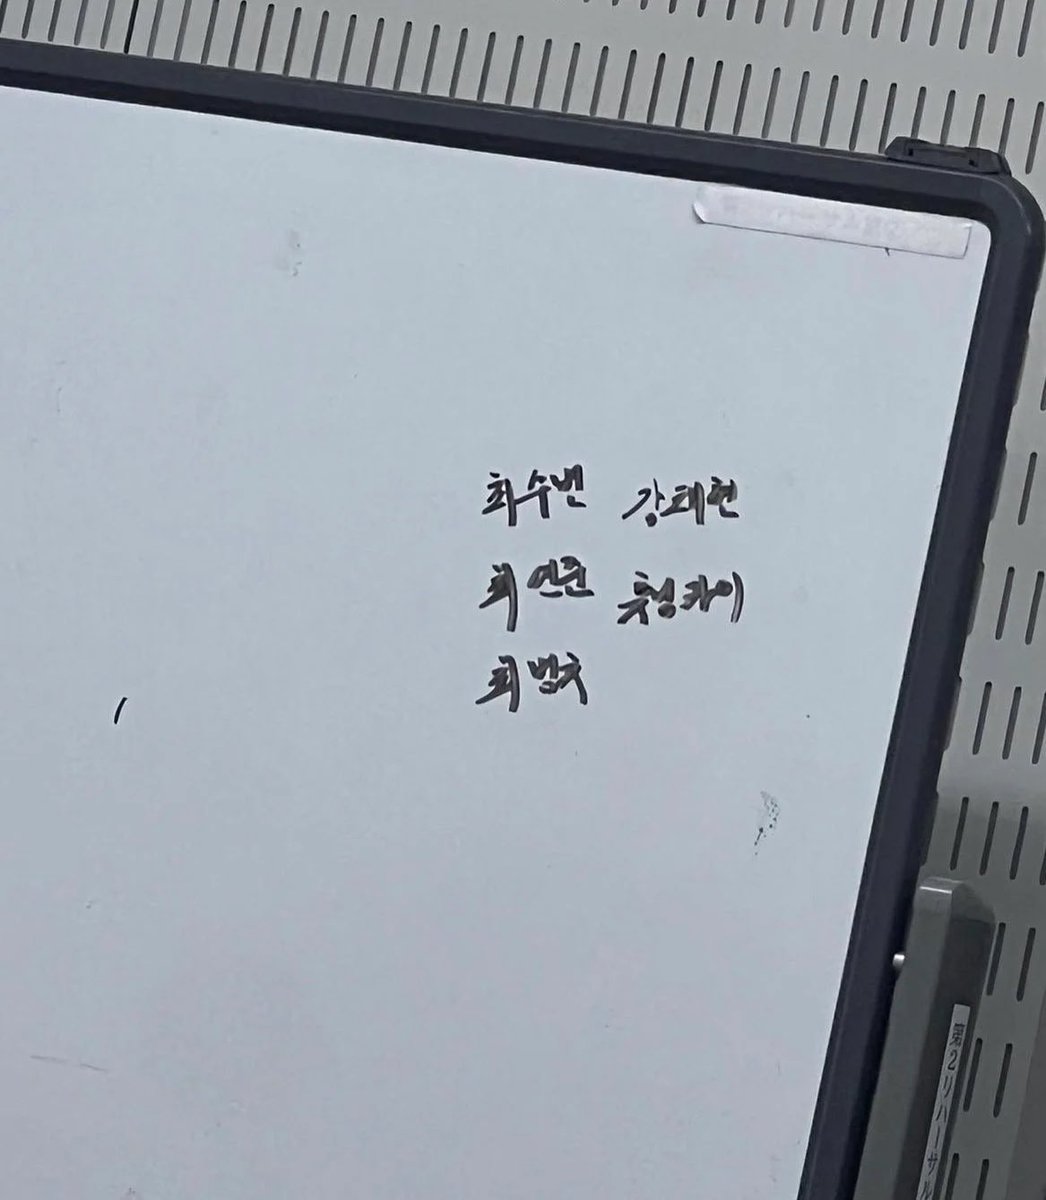 최수빈 강태현
최연준 휴닝카이
최범규
第2リハーサル